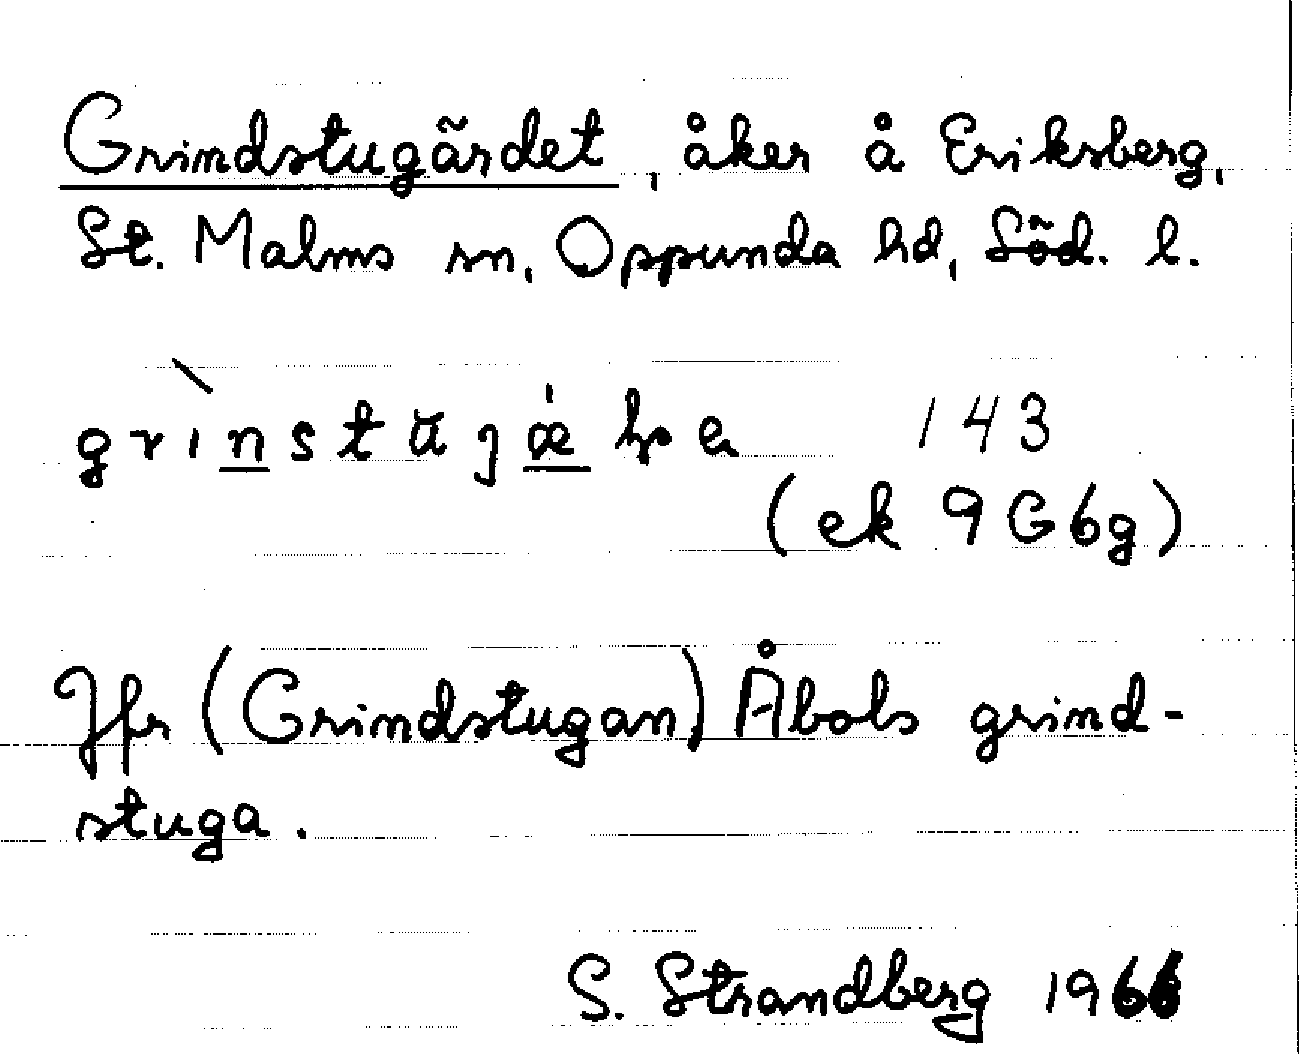 Grindstugärdet, åker å Eriksberg,
St. Malms sn, Oppunda hd, Söd. l.
143
(ek 9G6g)
Jfr (Grindstugan) Åbols grind-
stuga.
S. Strandberg 1966